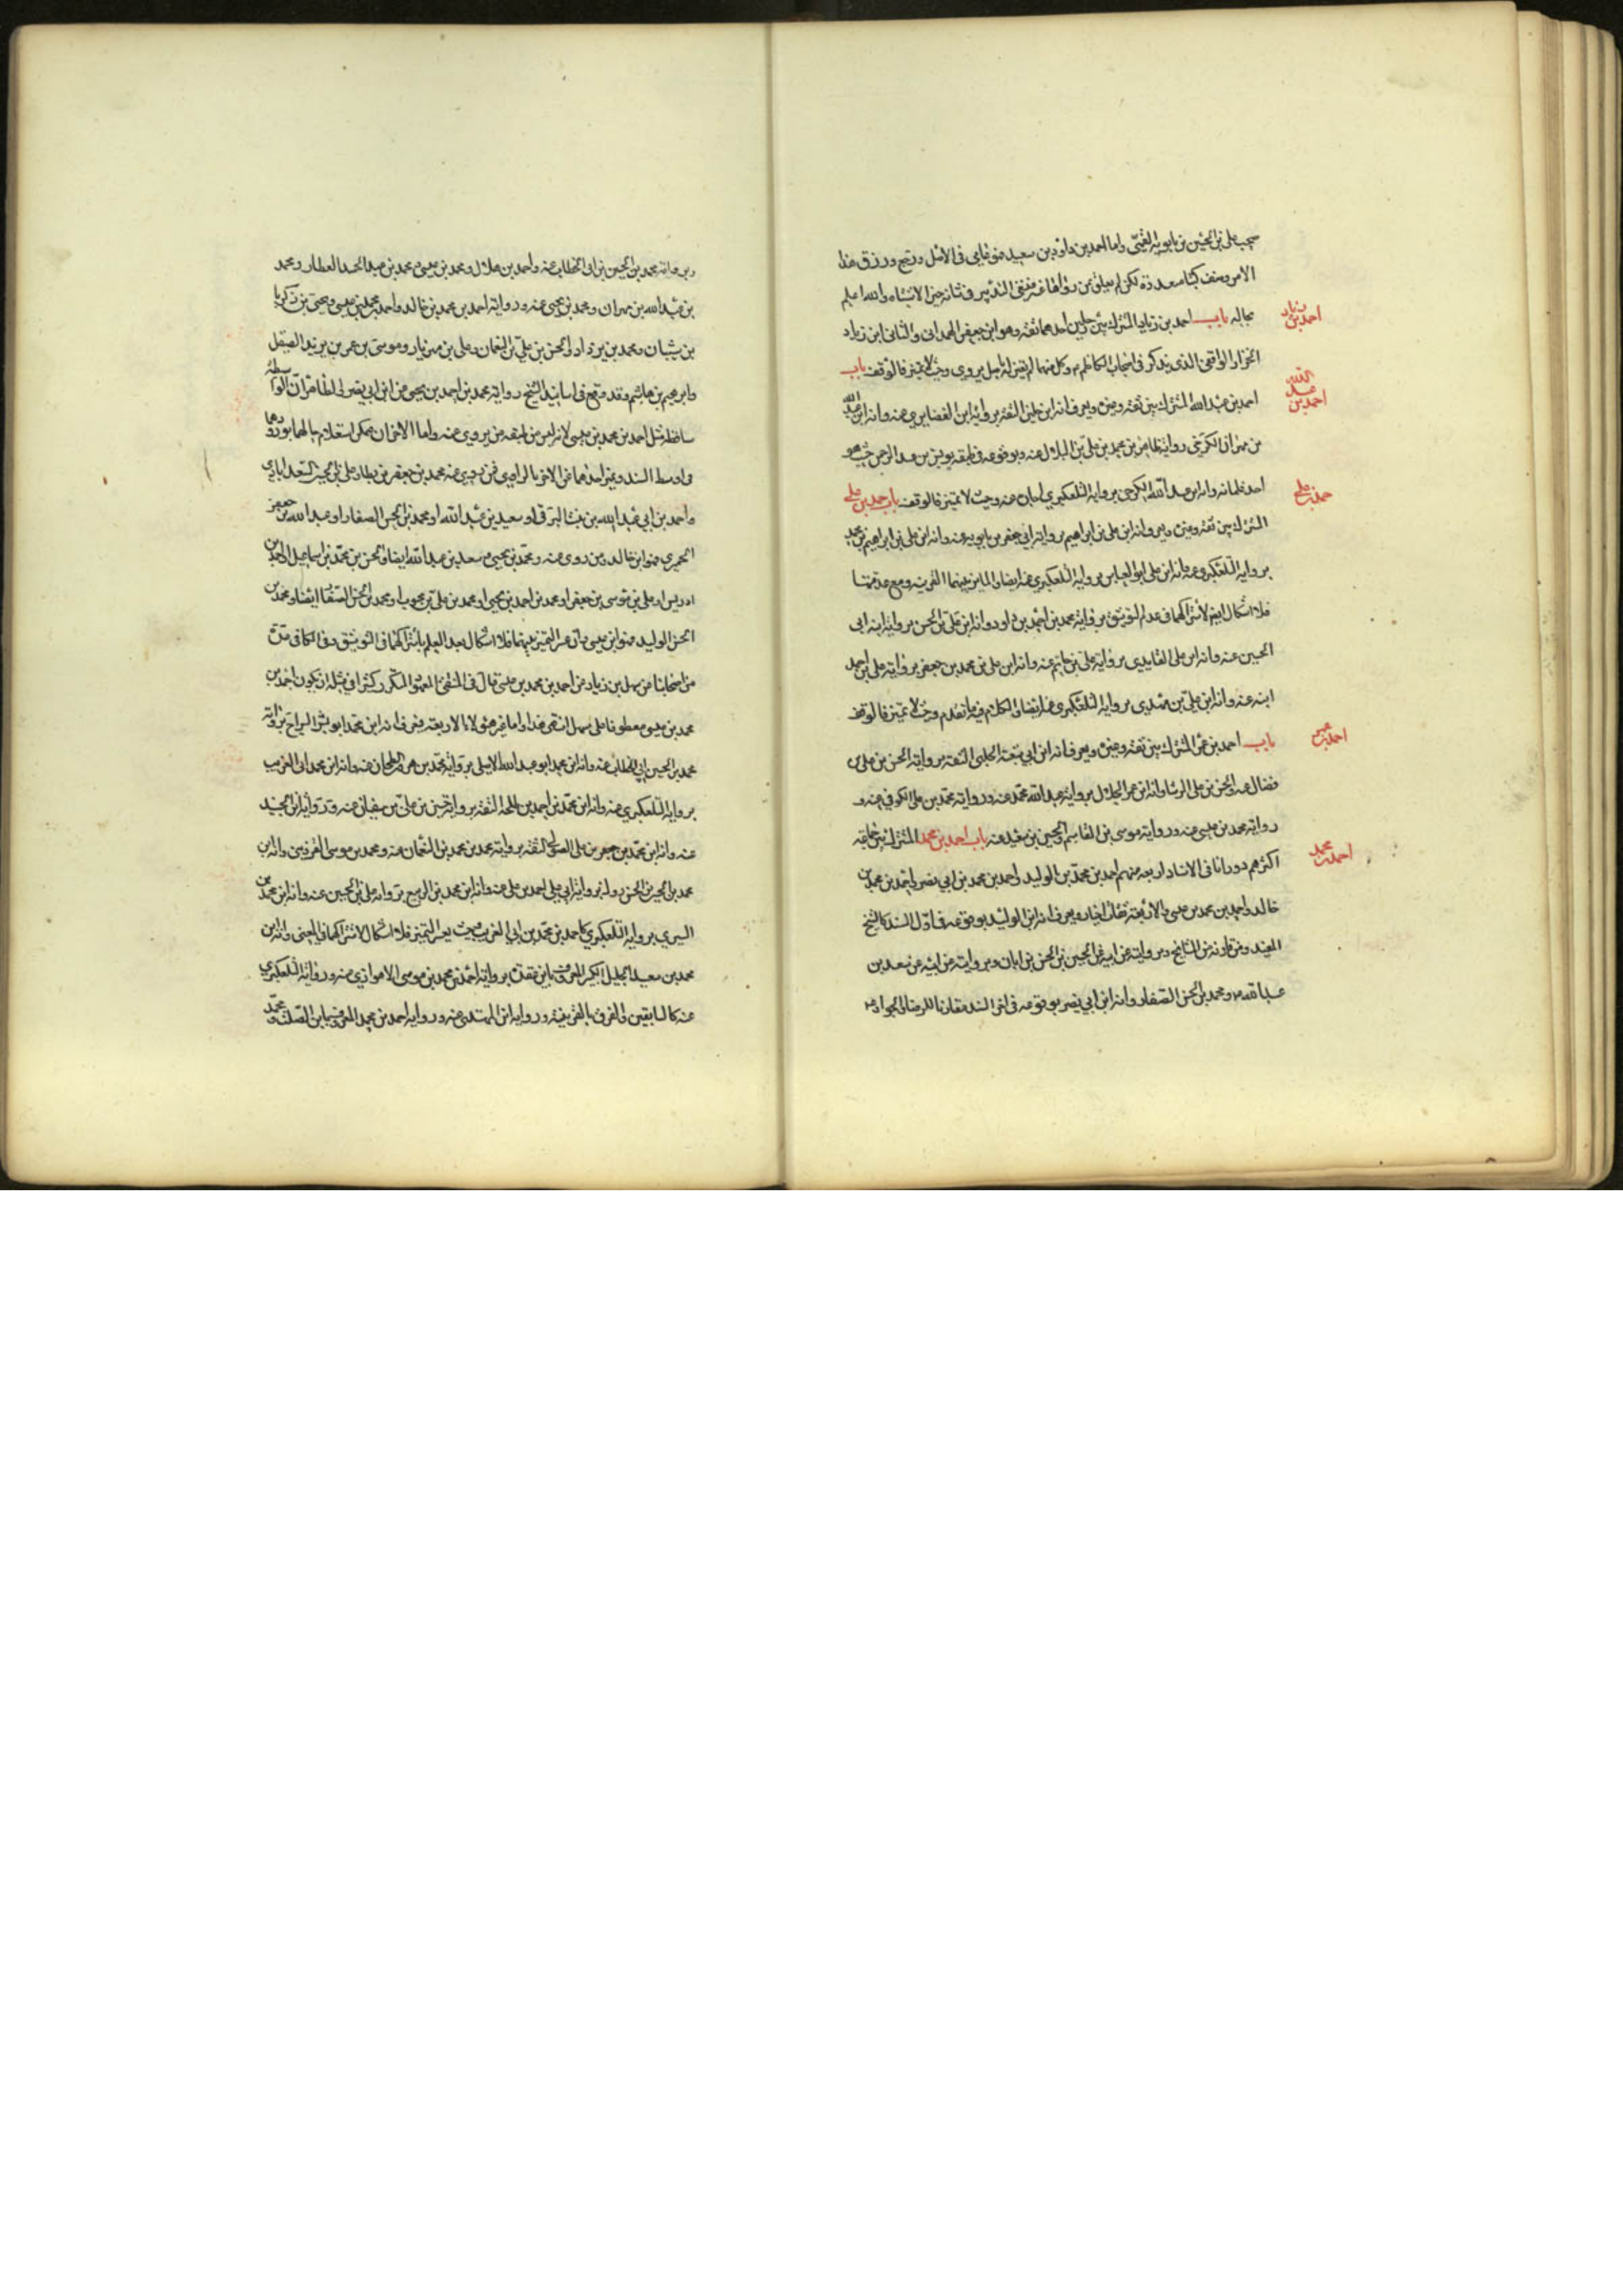 صحب علي بن الحسين بن بابويه القمي واما احمد بن داود بن سعيد فهو عامي في الاصل ورجع ورزق هذا
الامر وصنف كتبا متعددة لكن لم
بحاله باب احمد بن زياد المشترك بين رجلين احدهما ثقة وهو ابن جعفر الهمداني والثاني ابن زياد
احمد بن زياد
الخزاز الواقفي الذي يذكر في اصحاب الكاظم م وكل منهما لم يتميز له اصل يروى وحيث لا تميز فالوقف باب
احمد بن عبد الله المشترك بين ثقة وغيره ويعرف انه ابن جلين الثقة برواية ابن الغضايري عنه وانه ابن عبد الله
احمد بن عبد الله
بن مهران الكرخي رواية
احد غلمانه وانه ابن عبد الله الكرخي برواية التلعكبري عنه وحيث لا تميز فالوقف باب احمد بن علي
احمد بن علي
المشترك بين ثقة وغيره ويعرف انه ابن علي بن ابراهيم برواية ابي جعفر بن بابويه عنه وانه ابن علي بن ابراهيم بن محمد
برواية التلعكبري عنه وانه ابن علي ابو العباس برواية التلعكبري عنه ايضا والمايز بينهما القرينة ومع عدمها
فلا اشكال ايضا لاشتراكهما في عدم التوثيق برواية محمد بن احمد بن داود وانه ابن علي بن الحسن برواية ابنه ابي
الحسين عنه وانه ابن علي الفايدي برواية علي بن حاتم عنه وانه ابن علي بن محمد بن جعفر برواية علي بن احمد
ابنه عنه وانه ابن علي بن مهدي برواية التلعكبري عنه ايضا والكلام فيه ما تقدم وحيث لا تميز فالوقف
باب احمد بن عمر المشترك بين ثقة وغيره ويعرف انه ابن ابي شعبة الحلبي الثقة برواية الحسن بن علي بن
احمد بن عمر
فضال عنه والحسن بن علي الوشا وانه ابن عمر الحلال برواية عبد الله بن محمد عنه ورواية محمد بن علي الكوفي عنه و
رواية محمد بن عيسى عنه ورواية موسى بن القاسم والحسين بن سعيد عنه باب احمد بن محمد المشترك بين جماعة
احمد بن محمد
اكثرهم دورانا في الاسناد اربعة منهم احمد بن محمد بن الوليد واحمد بن محمد بن ابي نصر واحمد بن محمد بن
خالد واحمد بن محمد بن عيسى والاربعة ثقات اخيار ويعرف انه ابن الوليد بوقوعه في اول السند كالشيخ
المفيد ومن قاربه من المشايخ وبروايته عن ابيه عن الحسين بن الحسن بن ابان وبروايته عن ابيه عن سعد بن
عبد الله م ومحمد بن الحسن الصفار وانه ابن ابي نصر بوقوعه في اخر السند مقارنا للرضا او الجواد م
وبرواية محمد بن الحسين بن ابي الخطاب عنه واحمد بن هلال ومحمد بن عيسى ومحمد بن عبد الحميد العطار ومحمد
بن عبد الله بن مهران ومحمد بن يحيى عنه ورواية احمد بن محمد بن خالد واحمد بن محمد بن عيسى ويحيى بن زكريا
بن شيبان ومحمد بن يزداد والحسن بن علي بن النعمان وعلي بن مهزيار وموسى بن عمر بن يزيد الصيقل
وابرهيم بن هاشم وقد وقع في اسانيد الشيخ رواية محمد بن احمد بن يحيى عن ابن ابي نصر والظاهر ان الواسطة
ساقطة مثل احمد بن محمد بن عيسى لانه ليس من طبقة من يروي عنه واما الاخران يمكن استعلام حالهما بورودهما
في اوسط السند وتميز احدهما عن الاخر بالراوي فمن يروي عنه محمد بن جعفر بن بطة وعلي بن الحسين السعدابادي
واحمد بن ابي عبد الله بن بنت البرقي او سعيد بن عبد الله او محمد بن الحسن الصفار او عبد الله بن جعفر
الحميري فهو ابن خالد ومن روى عنه ومحمد بن يحيى وسعد بن عبد الله ايضا والحسن بن محمد بن اسماعيل او احمد بن
ادريس او علي بن موسى بن جعفر او محمد بن احمد بن يحيى او محمد بن علي بن محبوب او محمد بن الحسن الصفار ايضا ومحمد بن
الحسن الوليد فهو ابن عيسى وان عسر التميز بينهما فلا اشكال بعد العلم باشتراكهما في التوثيق وفي الكافي عدة
من اصحابنا عن سهل بن زياد عن احمد بن محمد بن عيسى قال في المنتقى المعهود المتكرر كثيرا في مثله ان يكون احمد بن
محمد بن عيسى معطوفا على سهل انتهى هذا واما غير هؤلاء الاربعة فيعرف انه ابن محمد ابو بشر السراج برواية
محمد بن الحسين ابي الخطاب عنه وانه ابن محمد ابو عبد الله الاملي برواية محمد بن هرون الزنجاني عنه وانه ابن محمد ابي الغريب
برواية التلعكبري عنه وانه ابن محمد بن احمد بن طلحة الثقة برواية حسين بن علي بن سفيان عنه ورواية ابن الجنيد
عنه وانه ابن محمد بن جعفر بن علي الصولي الثقة برواية محمد بن محمد بن النعمان عنه ومحمد بن موسى القزويني وانه ابن
محمد بن الحسين بن الحسن دول برواية ابي علي احمد بن علي عنه وانه ابن محمد بن الربيع برواية علي بن الحسين عنه وانه ابن محمد بن
السري برواية التلعكبري كاحمد بن محمد بن ابي الغريب وحيث يعسر التميز فلا اشكال لاشتراكهما في المعنى وانه ابن
محمد بن سعيد الجليل الكبير المعروف بابن عقدة برواية احمد بن محمد بن موسى الاهوازي عنه ورواية التلعكبري
عنه كالسابقين والفرق بالقرينة ورواية ابن المهتدي عنه ورواية احمد بن محمد المعروف بابن الصلت و محمد